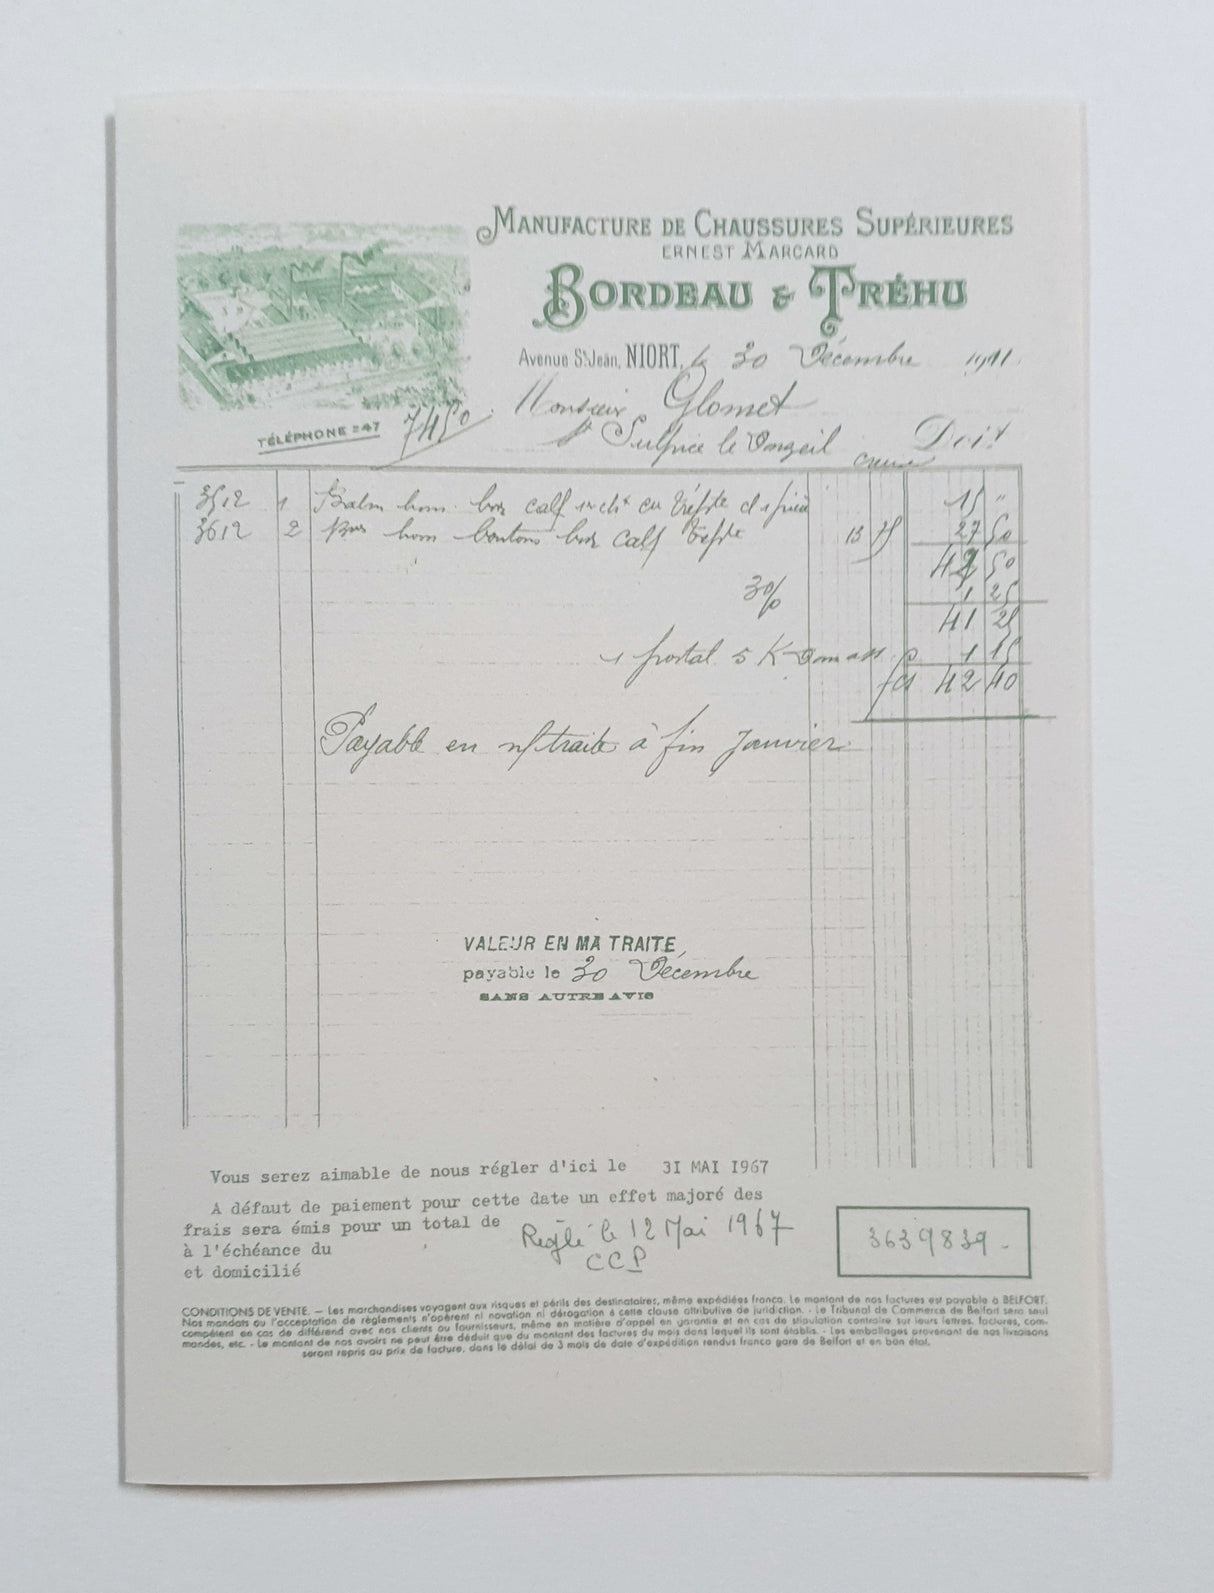 MANUFACTURE DE CHAUSSURES SUPÉRIEURES
ERNEST MARCARD
BORDEAU & TRÉHU
Avenue St Jean, NIORT, le 30 Décembre 1911
Monsieur Glomet
TÉLÉPHONE 247 7450
St Sulpice le Doit
3512 1 box calf 15 "
3612 2 hom boutons box calf 13 75 27 50
42 50
3% 1 25
41 25
1 postal 5 K 1 15
42 40
Payable en n/traite à fin Janvier
VALEUR EN MA TRAITE
payable le 30 Décembre
SANS AUTRE AVIS
Vous serez aimable de nous régler d'ici le 3I MAI I967
A défaut de paiement pour cette date un effet majoré des
frais sera émis pour un total de
à l'échéance du
et domicilié
Réglé le 12 Mai 1967
CCP
3639839-
CONDITIONS DE VENTE. — Les marchandises voyagent aux risques et périls des destinataires, même expédiées franco. Le montant de nos factures est payable à BELFORT.
Nos mandats ou l'acceptation de règlements n'opèrent ni novation ni dérogation à cette clause attributive de juridiction. - Le Tribunal de Commerce de Belfort sera seul
compétent en cas de différend avec nos clients ou fournisseurs, même en matière d'appel en garantie et en cas de stipulation contraire sur leurs lettres, factures, com-
mandes, etc. - Le montant de nos avoirs ne peut être déduit que du montant des factures du mois dans lequel ils sont établis. - Les emballages provenant de nos livraisons
seront repris au prix de facture, dans le délai de 3 mois de date d'expédition rendus franco gare de Belfort et en bon état.